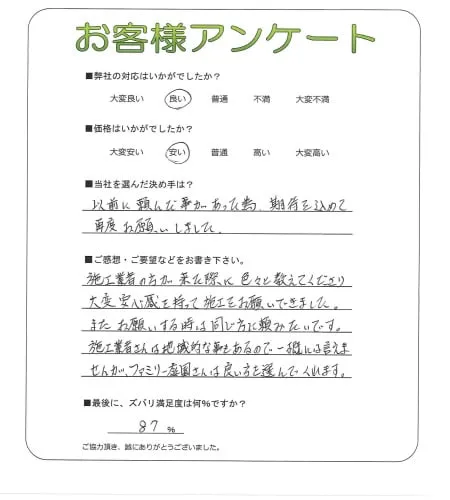 お客様アンケート
■弊社の対応はいかがでしたか？
大変良い 良い 普通 不満 大変不満
■価格はいかがでしたか？
大変安い 安い 普通 高い 大変高い
■当社を選んだ決め手は？
以前に頼んだ事があった為、期待を込めて
再度お願いしました。
■ご感想・ご要望などをお書き下さい。
施工業者の方が来た際に色々と教えてくださり
大変安心感を持って施工をお願いできました。
またお願いする時は同じ方に頼みたいです。
施工業者さんは地域的な事もあるので一概には言えま
せんが、ファミリー庭園さんは良い方を選んでくれます。
■最後に、ズバリ満足度は何％ですか？
87 ％
ご協力頂き、誠にありがとうございました。